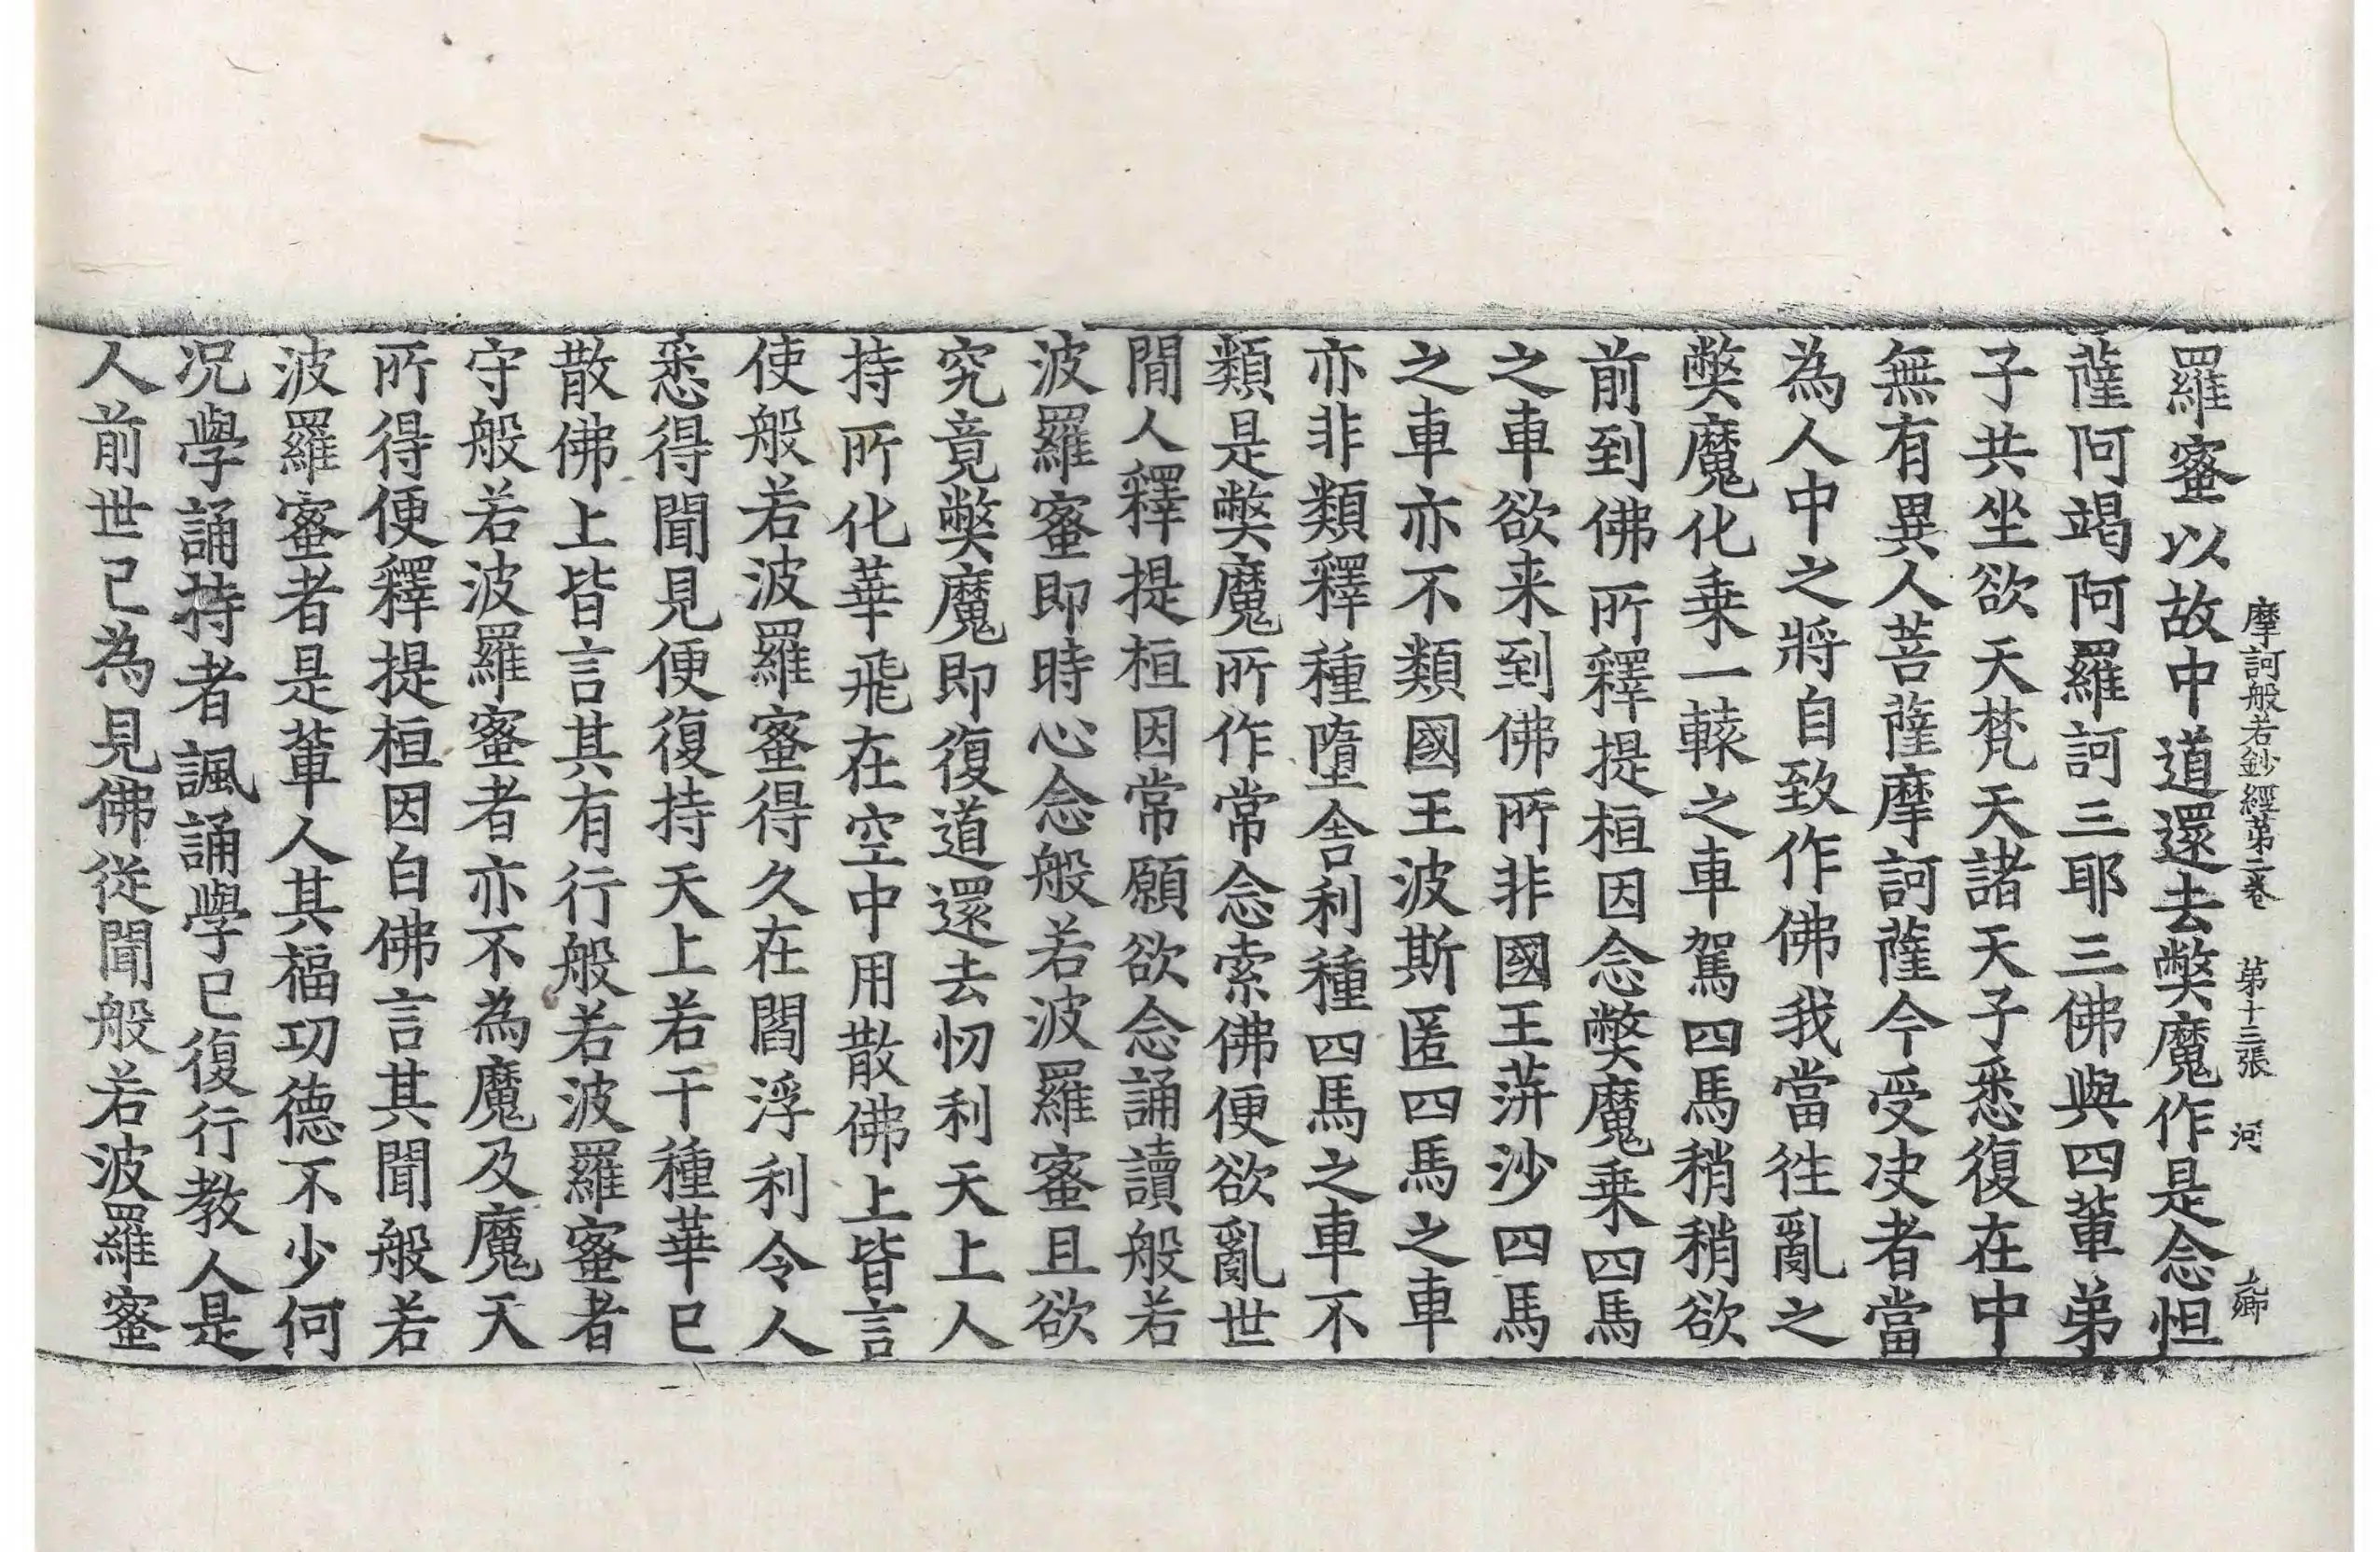 摩訶般若鈔經第二卷　第十三張　河
羅蜜以故中道還去弊魔作是念怛
薩阿竭阿羅訶三耶三佛與四軰弟
子共坐欲天梵天諸天子悉復在中
無有異人菩薩摩訶薩今受决者當
為人中之將自致作佛我當徃亂之
弊魔化乗一轅之車駕四馬稍稍欲
前到佛所釋提桓因念弊魔乗四馬
之車欲来到佛所非國王蓱沙四馬
之車亦不類國王波斯匿四馬之車
亦非類釋種墮舍利種四馬之車不
類是弊魔所作常念索佛便欲亂世
間人釋提桓因常願欲念誦讀般若
波羅蜜即時心念般若波羅蜜且欲
究竟弊魔即復道還去忉利天上人
持所化華飛在空中用散佛上皆言
使般若波羅蜜得久在閻浮利令人
悉得聞見便復持天上若干種華已
散佛上皆言其有行般若波羅蜜者
守般若波羅蜜者亦不為魔及魔天
所得便釋提桓因白佛言其聞般若
波羅蜜者是軰人其福功德不少何
况學誦持者諷誦學已復行教人是
人前世已為見佛從聞般若波羅蜜